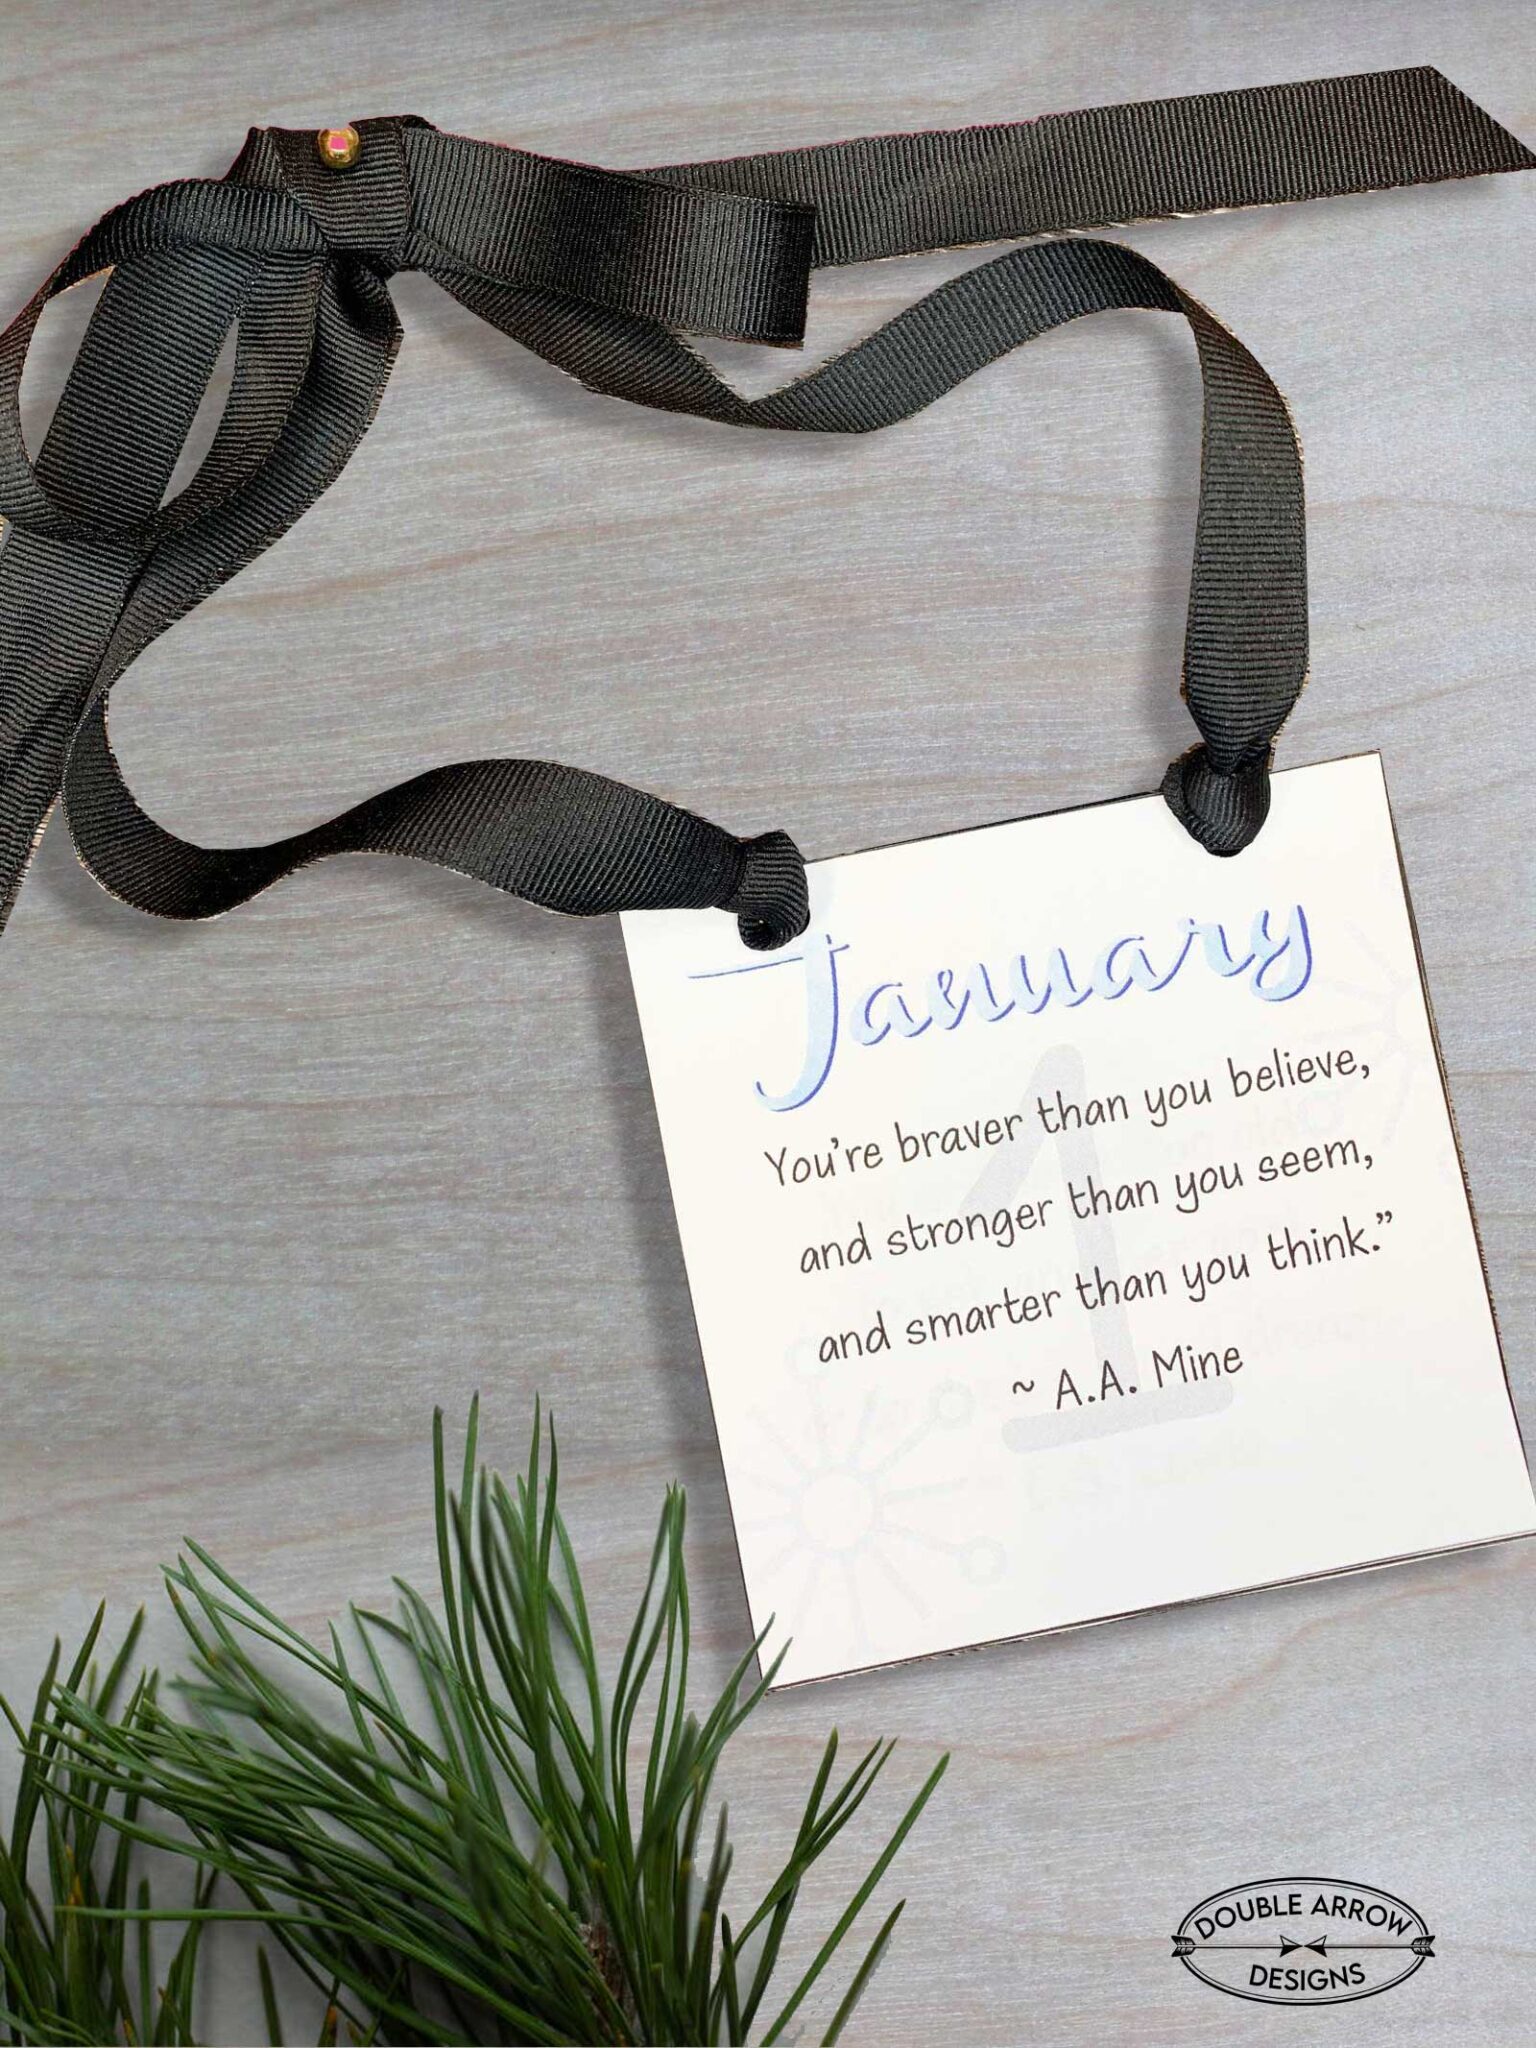 January
1
You're braver than you believe,
and stronger than you seem,
and smarter than you think."
~ A.A. Mine
DOUBLE ARROW
DESIGNS